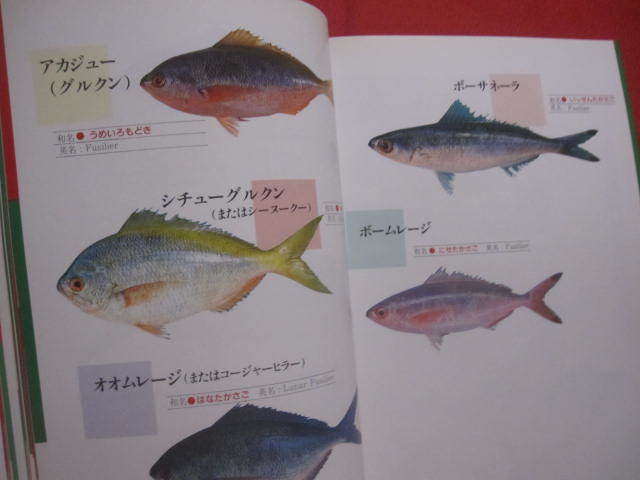 アカジュー
(グルクン)
和名●うめいろもどき
英名:Fusilier
シチューグルクン
(またはシーヌークー)
和名●
英名:
オオムレージ(またはコージャーヒラー)
和名●はなたかさご 英名:Lunar Fusilier
ボーサネーラ
和名●いっせんたかさご
英名:Fusilier
ボームレージ
和名●にせたかさご 英名:Fusilier